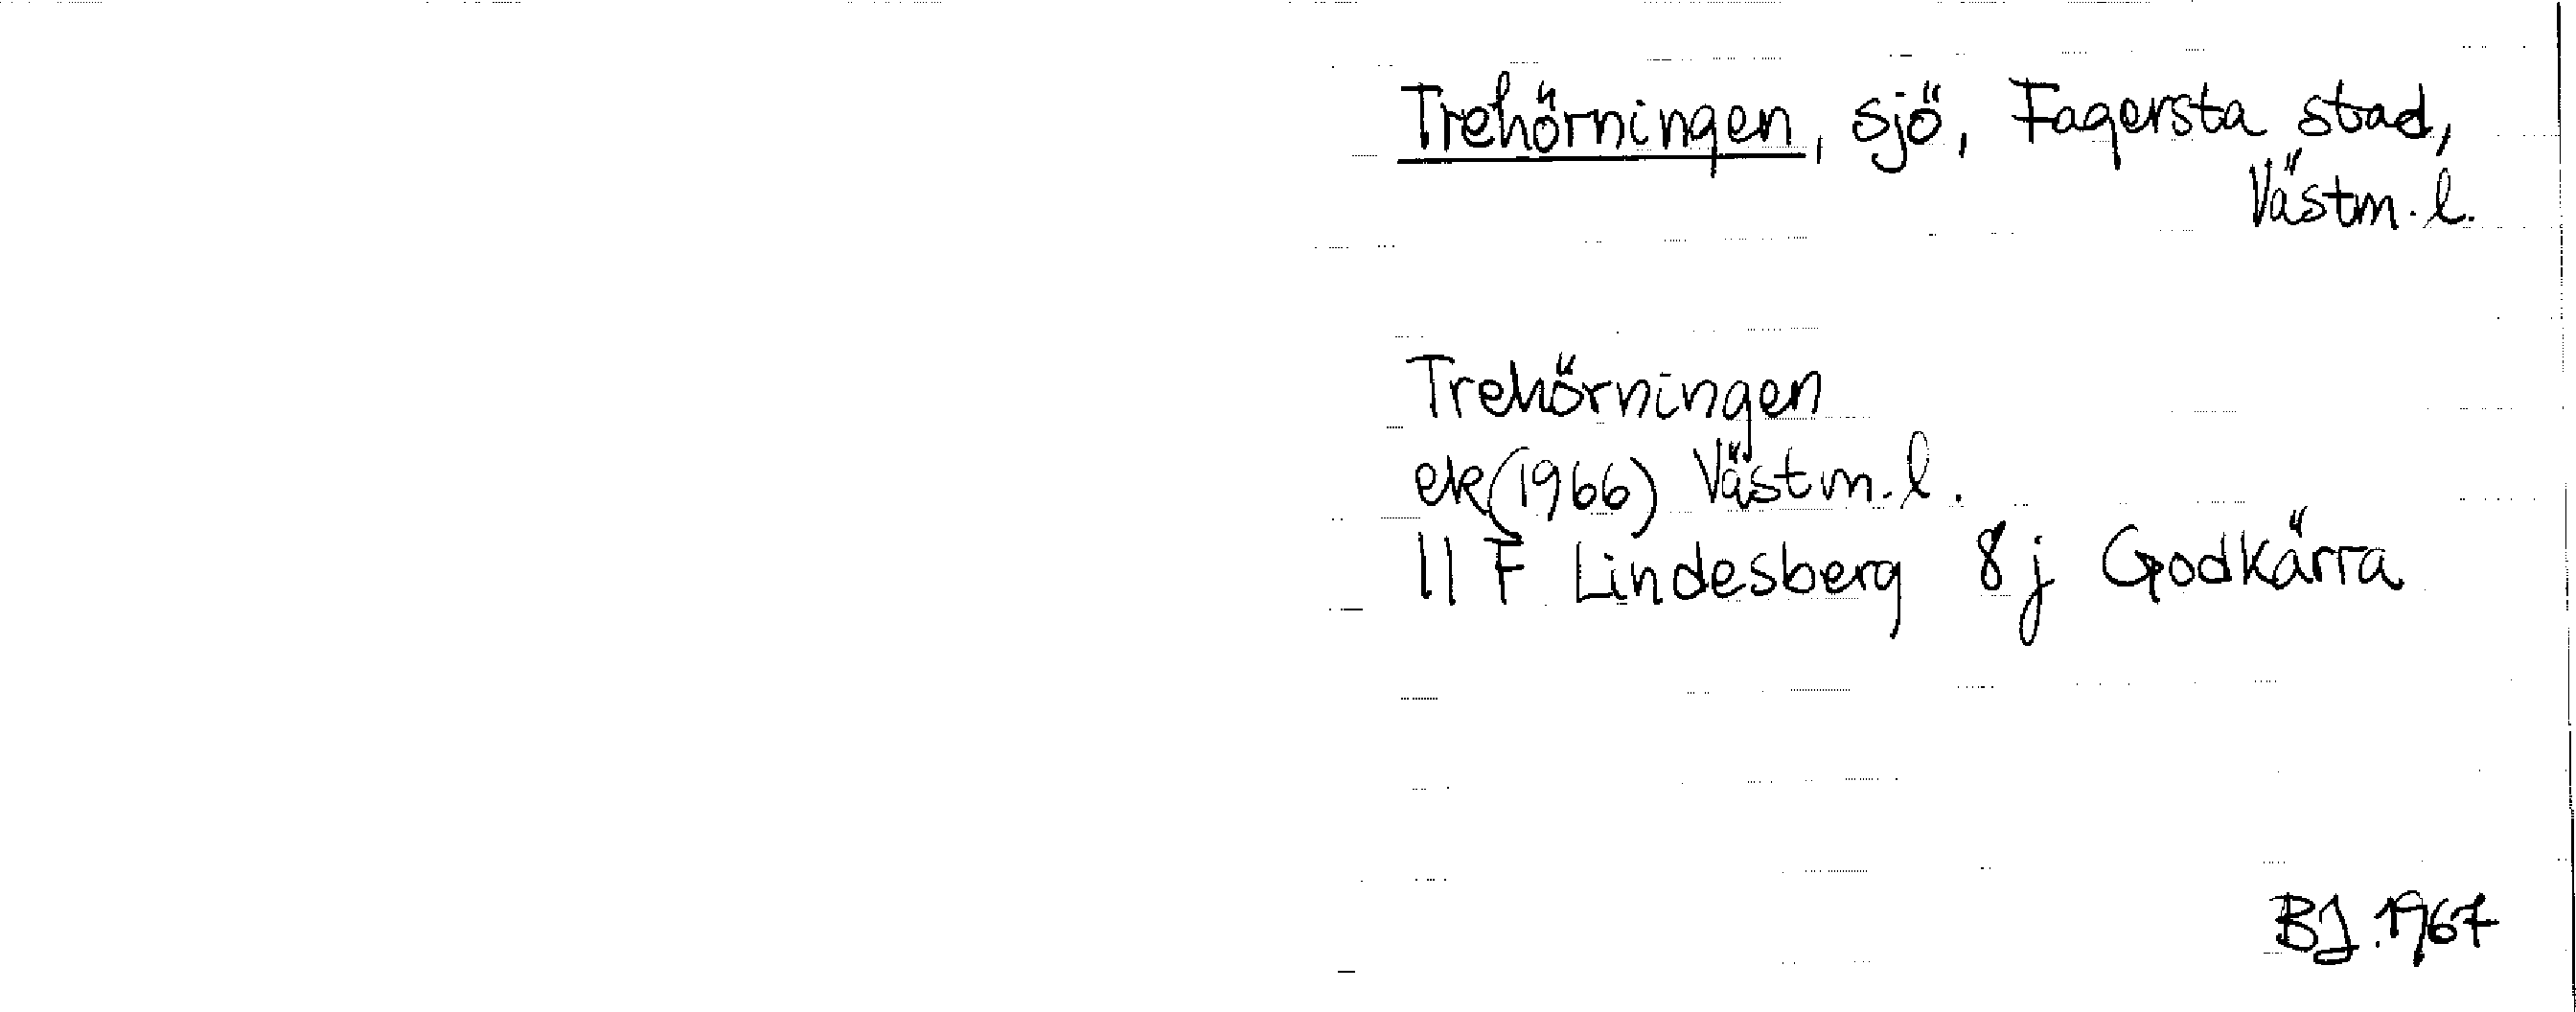 Trehörningen, sjö, Fagersta stad,
Västm. l.
Trehörningen
ek (1966) Västm. l.
11 F Lindesberg 8 j Godkärra
BJ. 1967